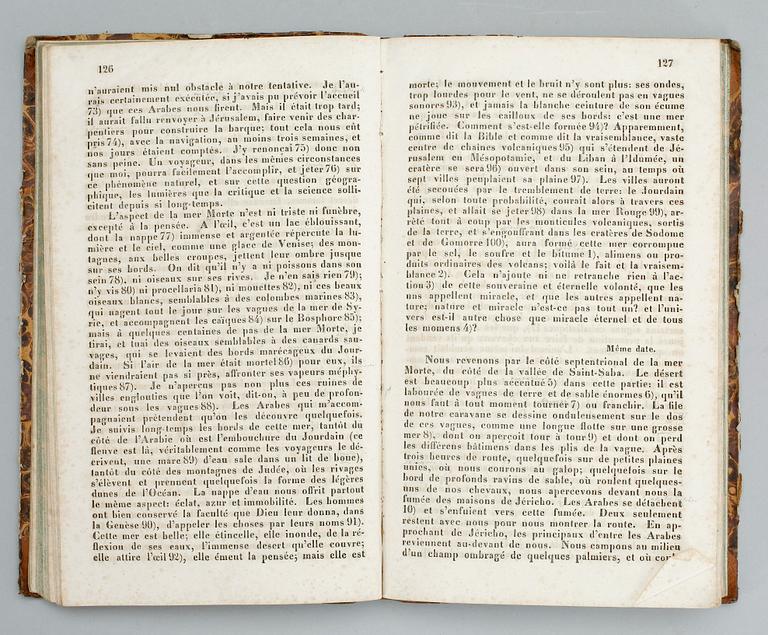 126
n'auraient mis nul obstacle à notre tentative. Je l'au-
rais certainement exécutée, si j'avais pu prévoir l'accueil
73) que ces Arabes nous firent. Mais il était trop tard;
il aurait fallu renvoyer à Jérusalem, faire venir des char-
pentiers pour construire la barque; tout cela nous eût
pris 74), avec la navigation, au moins trois semaines, et
nos jours étaient comptés. J'y renonçai 75) donc non
sans peine. Un voyageur, dans les mêmes circonstances
que moi, pourra facilement l'accomplir, et jeter 76) sur
ce phénomène naturel, et sur cette question géogra-
phique, les lumières que la critique et la science solli-
citent depuis si long-temps.
L'aspect de la mer Morte n'est ni triste ni funèbre,
excepté à la pensée. A l'œil, c'est un lac éblouissant,
dont la nappe 77) immense et argentée répercute la lu-
mière et le ciel, comme une glace de Venise; des mon-
tagnes, aux belles croupes, jettent leur ombre jusque
sur ses bords. On dit qu'il n'y a ni poissons dans son
sein 78), ni oiseaux sur ses rives. Je n'en sais rien 79);
n'y vis 80) ni procellaria 81), ni mouettes 82), ni ces beaux
oiseaux blancs, semblables à des colombes marines 83),
qui nagent tout le jour sur les vagues de la mer de Sy-
rie, et accompagnent les caïques 84) sur le Bosphore 85);
mais à quelques centaines de pas de la mer Morte, je
tirai, et tuai des oiseaux semblables à des canards sau-
vages, qui se levaient des bords marécageux du Jour-
dain. Si l'air de la mer était mortel 86) pour eux, ils
ne viendraient pas si près, affronter ses vapeurs méphy-
tiques 87). Je n'aperçus pas non plus ces ruines de
villes englouties que l'on voit, dit-on, à peu de profon-
deur sous les vagues 88). Les Arabes qui m'accom-
pagnaient prétendent qu'on les découvre quelquefois.
Je suivis long-temps les bords de cette mer, tantôt du
côté de l'Arabie où est l'embouchure du Jourdain (ce
fleuve est là, véritablement comme les voyageurs le dé-
crivent, une mare 89) d'eau sale dans un lit de boue),
tantôt du côté des montagnes de Judée, où les rivages
s'élèvent et prennent quelquefois la forme des légères
dunes de l'Océan. La nappe d'eau nous offrit partout
le même aspect: éclat, azur et immobilité. Les hommes
ont bien conservé la faculté que Dieu leur donna, dans
la Genèse 90), d'appeler les choses par leurs noms 91).
Cette mer est belle; elle étincelle, elle inonde, de la ré-
flexion de ses eaux, l'immense desert qu'elle couvre;
elle attire l'œil 92), elle émeut la pensée; mais elle est
127
morte; le mouvement et le bruit n'y sont plus: ses ondes,
trop lourdes pour le vent, ne se déroulent pas en vagues
sonores 93), et jamais la blanche ceinture de son écume
ne joue sur les cailloux de ses bords: c'est une mer
pétrifiée. Comment s'est-elle formée 94)? Apparemment,
comme dit la Bible et comme dit la vraisemblance, vaste
centre de chaînes volcaniques 95) qui s'étendent de Jé-
rusalem en Mésopotamie, et du Liban à l'Idumée, un
cratère se sera 96) ouvert dans son sein, au temps où
sept villes peuplaient sa plaine 97). Les villes auront
été secouées par le tremblement de terre: le Jourdain
qui, selon toute probabilité, courait alors à travers ces
plaines, et allait se jeter 98) dans la mer Rouge 99), ar-
rêté tout à coup par les monticules volcaniques, sortis
de la terre, et s'engouffrant dans les cratères de Sodome
et de Gomorre 100), aura formé cette mer corrompue
par le sel, le soufre et le bitume 1), alimens ou pro-
duits ordinaires des volcans; voilà le fait et la vraisem-
blance 2). Cela n'ajoute ni ne retranche rien à l'ac-
tion 3) de cette souveraine et éternelle volonté, que les
uns appellent miracle, et que les autres appellent na-
ture; nature et miracle n'est-ce pas tout un? et l'uni-
vers est-il autre chose que miracle éternel et de tous
les momens 4)?
Même date.
Nous revenons par le côté septentrional de la mer
Morte, du côté de la vallée de Saint-Saba. Le désert
est beaucoup plus accentué 5) dans cette partie: il est
labourée de vagues de terre et de sable énormes 6), qu'il
nous faut à tout moment tourner 7) ou franchir. La file
de notre caravane se dessine onduleusement sur le dos
de ces vagues, comme une longue flotte sur une grosse
mer 8), dont on aperçoit tour à tour 9) et dont on perd
les différens bâtimens dans les plis de la vague. Après
trois heures de route, quelquefois sur de petites plaines
unies, où nous courons au galop; quelquefois sur le
bord de profonds ravins de sable, où roulent quelques-
uns de nos chevaux, nous apercevons devant nous la
fumée des maisons de Jéricho. Les Arabes se détachent
10) et s'enfuient vers cette fumée. Deux seulement
restent avec nous pour nous montrer la route. En ap-
prochant de Jéricho, les principaux d'entre les Arabes
reviennent au-devant de nous. Nous campons au milieu
d'un champ ombragé de quelques palmiers, et où